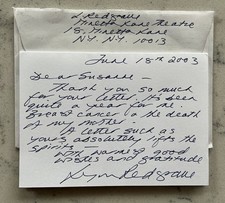 L Redgrave
Minetta Lane Theatre
18, Minetta Lane
N.Y. N.Y. 10013
June 18th 2003
Dear Susanne -
Thank you so much
for your letter. It's been
quite a year for me -
Breast cancer & the death
of my mother.
A letter such as
yours absolutely lifts the
spirits.
Warm and good
wishes and gratitude
Lynn Redgrave